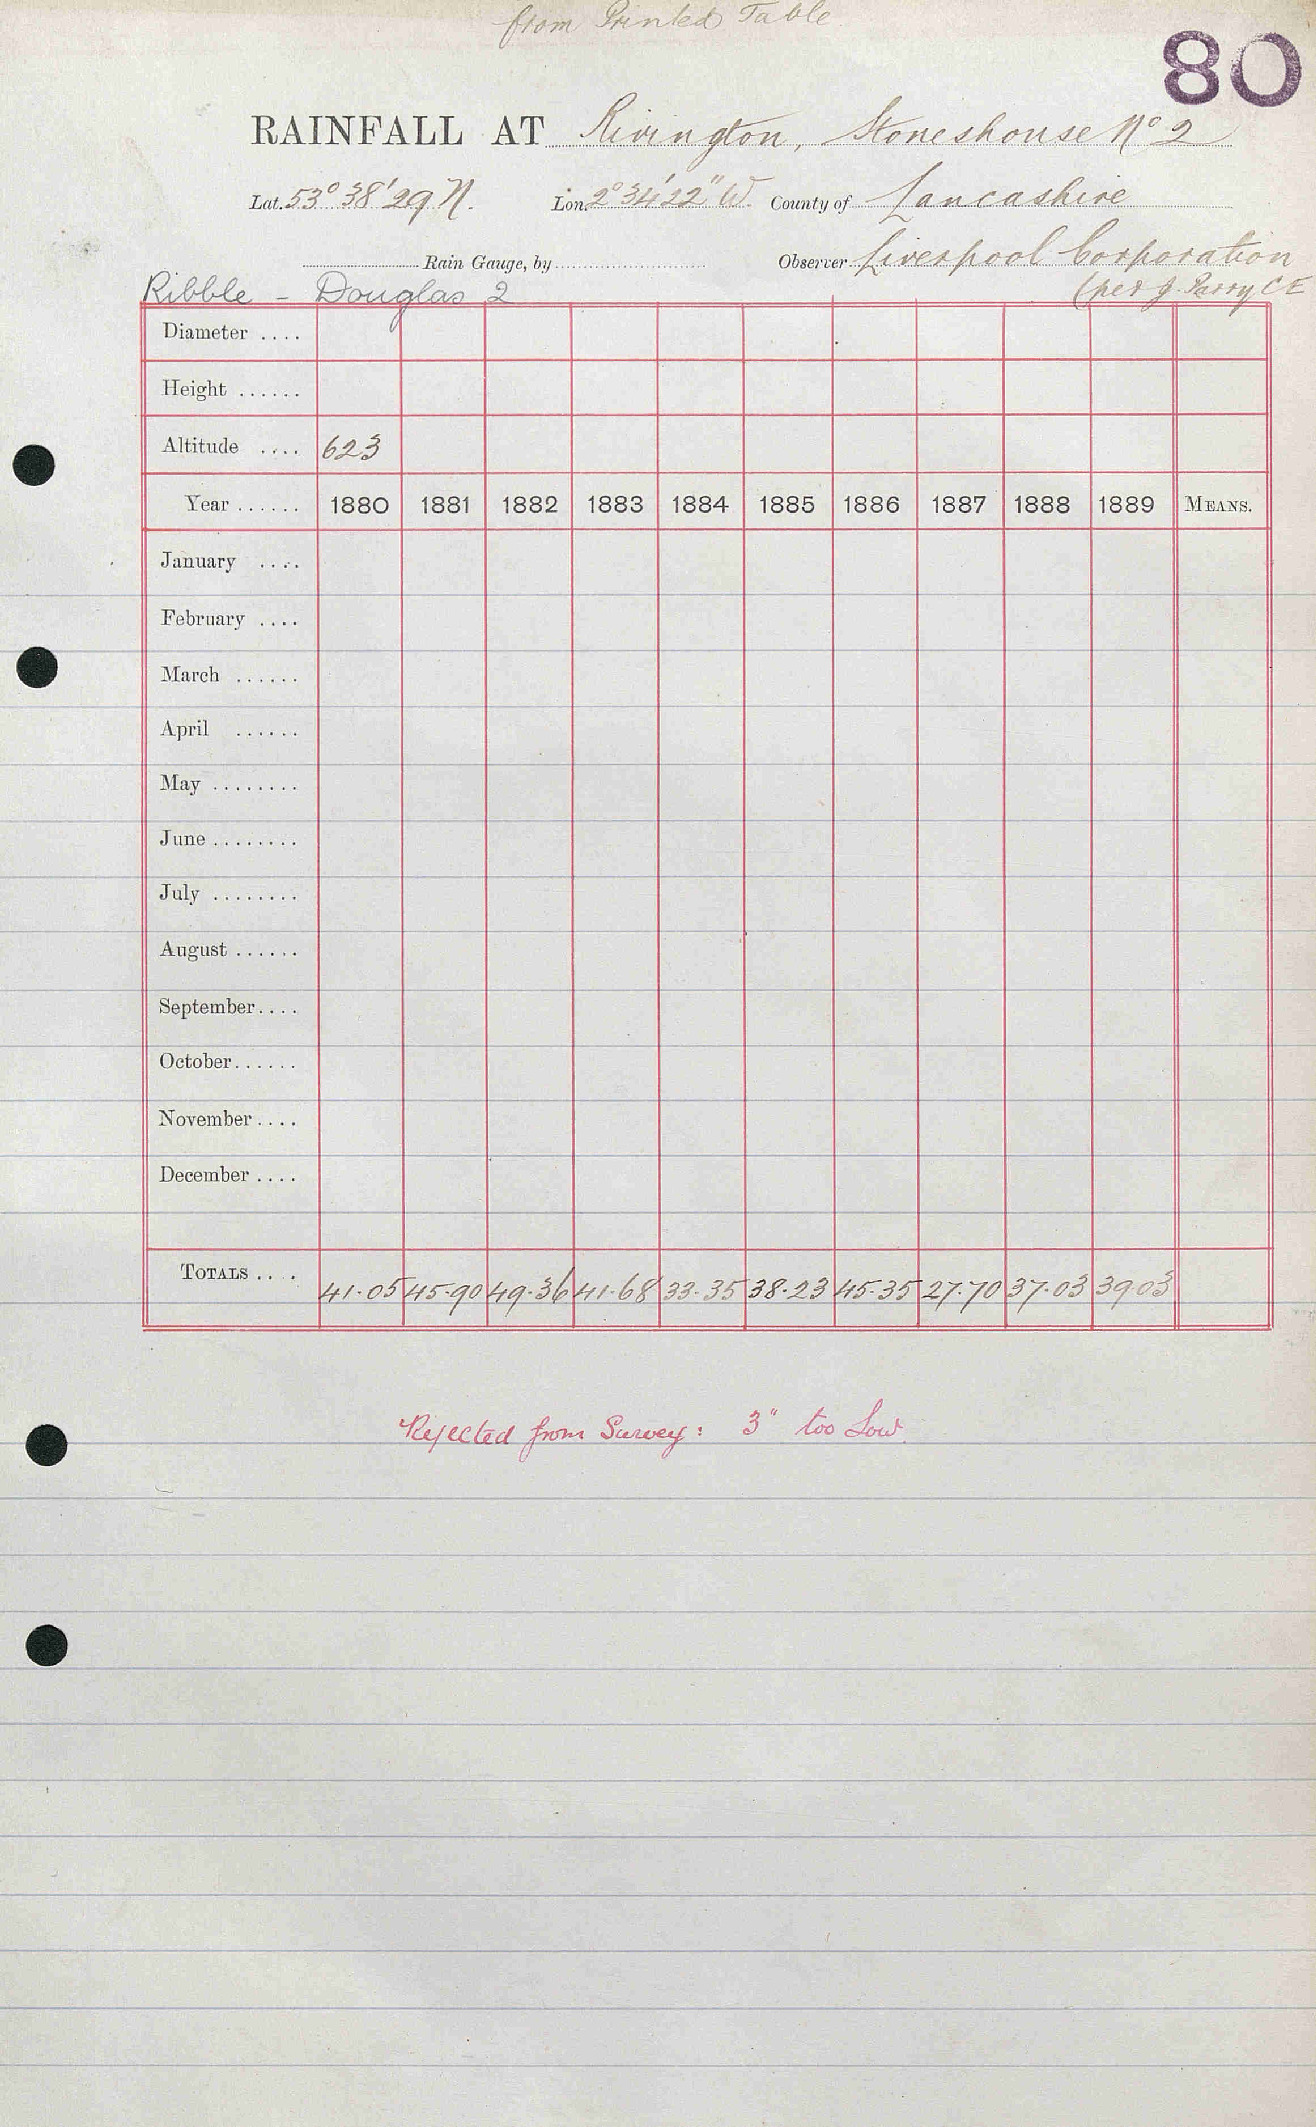 from Printed Table
80
RAINFALL AT Rivington, Stoneshouse No 2
Lat. 53° 38' 29 N. Lon. 2° 34' 22" W. County of Lancashire
Rain Gauge, by Observer Liverpool Corporation
Ribble - Douglas 2 (per J. Parry C E
Diameter ....
Height ......
Altitude .... 623
Year ...... 1880 1881 1882 1883 1884 1885 1886 1887 1888 1889 MEANS.
January ....
February ....
March ......
April ......
May ........
June ........
July ........
August ......
September ....
October ......
November ....
December ....
TOTALS .... 41.05 45.90 49.36 41.68 33.35 38.23 45.35 27.70 37.03 39.03
Rejected from Survey: 3" too Low